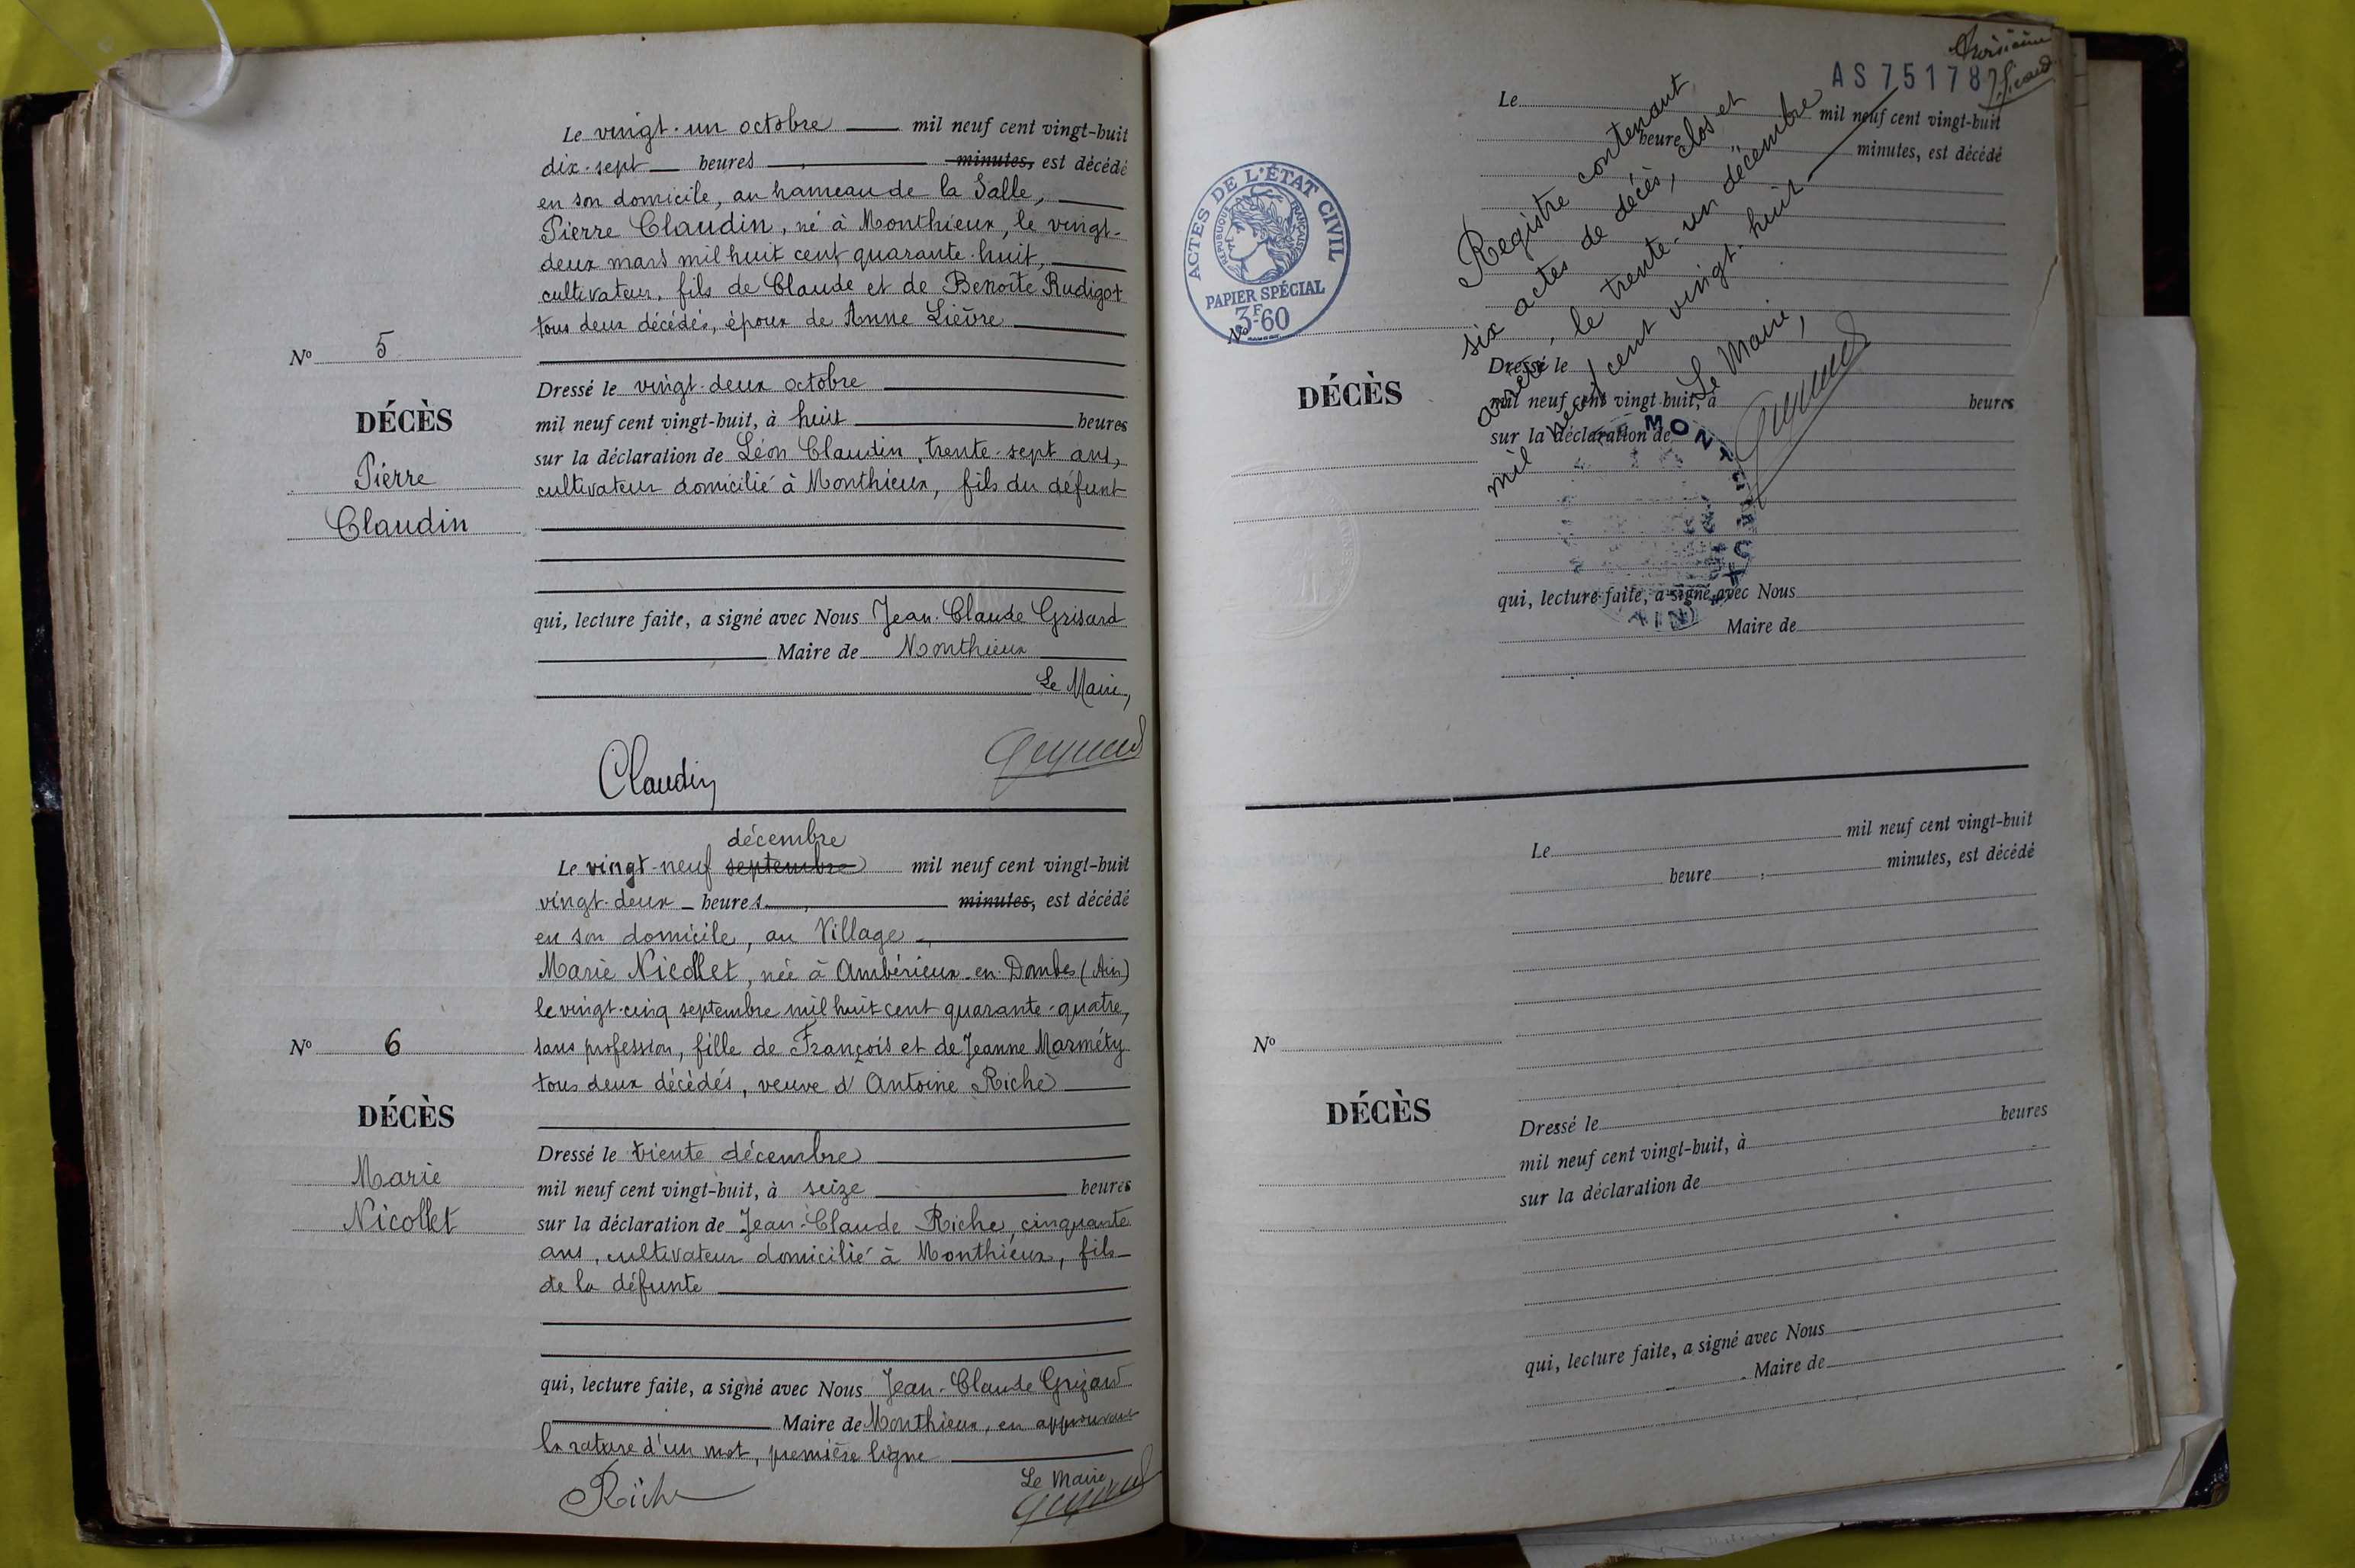 Le vingt-un octobre mil neuf cent vingt-huit
dix-sept heures, minutes, est décédé
en son domicile, au hameau de la Salle,
Pierre Claudin, né à Monthieux, le vingt-
deux mars mil huit cent quarante-huit,
cultivateur, fils de Claude et de Benoîte Rudigot
tous deux décédés, époux de Anne Lièvre
No 5
Dressé le vingt-deux octobre
DÉCÈS
mil neuf cent vingt-huit, à huit heures
sur la déclaration de Léon Claudin, trente-sept ans,
Pierre
cultivateur domicilié à Monthieux, fils du défunt
Claudin
qui, lecture faite, a signé avec Nous Jean-Claude Grisard
Maire de Monthieux
Le Maire,
Claudin
décembre
Le vingt-neuf septembre mil neuf cent vingt-huit
vingt-deux heures, minutes, est décédé
en son domicile, au Village,
Marie Nicollet, née à Ambérieux-en-Dombes (Ain)
le vingt-cinq septembre mil huit cent quarante-quatre,
No 6
sans profession, fille de François et de Jeanne Marméty
tous deux décédés, veuve d'Antoine Riche
DÉCÈS
Dressé le trente décembre
Marie
mil neuf cent vingt-huit, à seize heures
Nicollet
sur la déclaration de Jean-Claude Riche, cinquante
ans, cultivateur domicilié à Monthieux, fils
de la défunte
qui, lecture faite, a signé avec Nous Jean-Claude Grizard
Maire de Monthieux, en approuvant
la rature d'un mot, première ligne
Le Maire
Riche
AS 75178
Le mil neuf cent vingt-huit
heure minutes, est décédé
ACTES DE L'ÉTAT CIVIL
RÉPUBLIQUE FRANÇAISE
PAPIER SPÉCIAL
3F60
No
Registre contenant
six actes de décès, clos et
arrêté, le trente-un décembre
mil neuf cent vingt-huit
Le Maire,
DÉCÈS
Dressé le
mil neuf cent vingt-huit, à heures
sur la déclaration de
qui, lecture faite, a signé avec Nous
Maire de
Le mil neuf cent vingt-huit
heure, minutes, est décédé
No
DÉCÈS
Dressé le
mil neuf cent vingt-huit, à heures
sur la déclaration de
qui, lecture faite, a signé avec Nous
Maire de